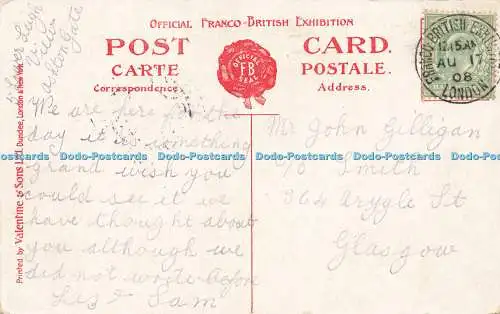 OFFICIAL FRANCO-BRITISH EXHIBITION
POST CARD.
CARTE POSTALE.
Correspondence. Address.
OFFICIAL
F.B.E
SEAL
FRANCO BRITISH
12.15 AM
AU 17
08
LONDON
Leigh
View
Ashton Gate
We are here for the
day it is something
grand wish you
could see it we
have thought about
you although we
did not write before
Sam
Mr John Gilligan
c/o Smith
364 Argyle St
Glasgow
Printed by Valentine & Sons Ltd, Dundee, London & New York.
Dodo-Postcards Dodo-Postcards Dodo-Postcards Dodo-Postcards